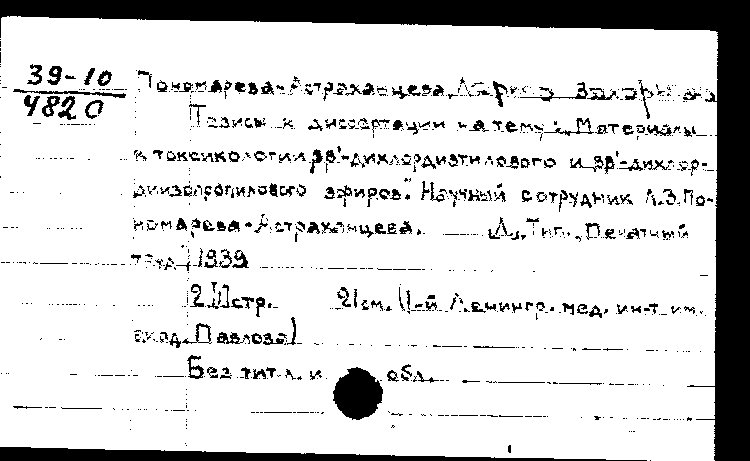 39-10
4820
Пономарева-Астраханцева, Лариса
Тезисы к диссертации на тему: "Материалы
к токсикологии ββ'-дихлордиэтилового и ββ'-дихлор-
диизопропилового эфиров." Научный сотрудник Л.З. По-
номарева-Астраханцева. Л., Тип. "Печатный
труд", 1939
2 стр. 21 см. (1-й Ленингр. мед. ин-т им.
акад. Павлова)
Без тит. л. и обл.